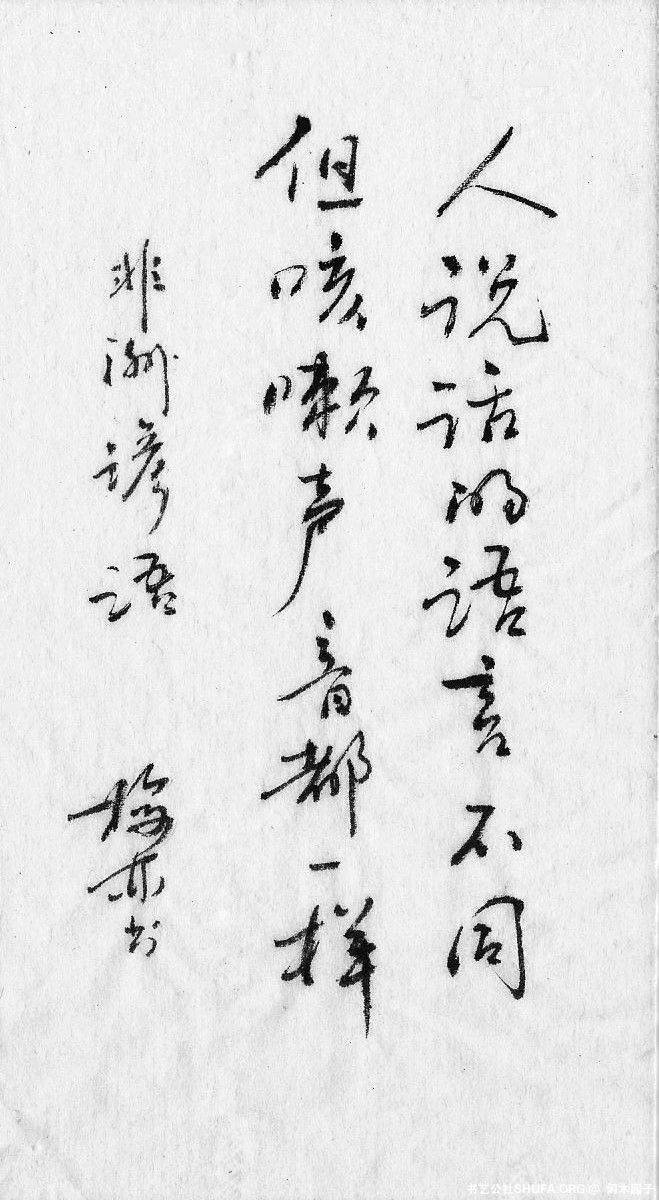 人说话的语言不同
但咳嗽声音都一样
非洲谚语
书
书艺公社SHUFA.ORG @